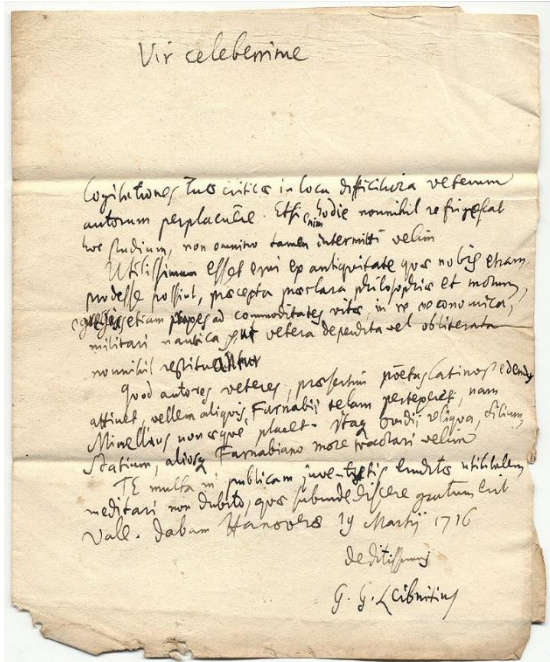 Vir celeberrime
Cogitationes Tuas criticas in loca difficiliora veterum
autorum perplacuêre. Etsi enim hodie nonnihil refrigescat
hoc studium, non omnino tamen intermitti velim
Utilissimum esset erui ex antiquitate quae nobis etiam
prodesse possint, praecepta praeclara philosophica et morum,
egregias etiam ad commoditates vitae, in re oeconomica,
militari nautica, ut vetera deperdita vel obliterata
nonnihil restituantur
Quod autores veteres, praesertim poëtas Latinos edendos
attinet, vellem aliquis Farnabii telam pertexeret, nam
Minellius non aeque placet. Itaq Ovidii reliqua, Silium,
Statium, aliosq Farnabiano more tractari velim
TE multa in publicam juventutis eruditae utilitatem
meditari non dubito, quae subinde discere gratum erit
Vale. dabam Hanoverae 19 Martij 1716
deditissimus
G. G. Leibnitius